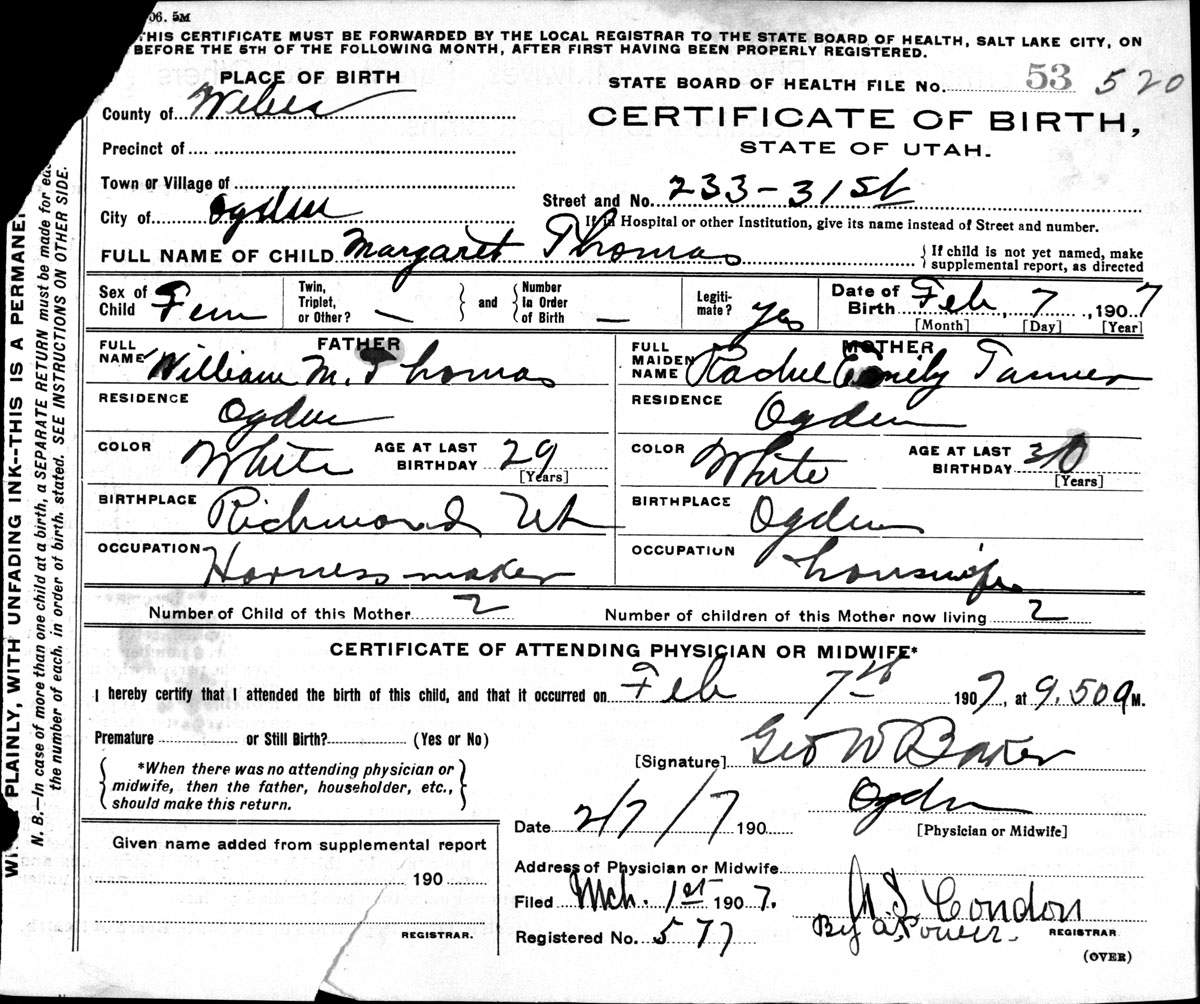 06. 5M
THIS CERTIFICATE MUST BE FORWARDED BY THE LOCAL REGISTRAR TO THE STATE BOARD OF HEALTH, SALT LAKE CITY, ON
BEFORE THE 5TH OF THE FOLLOWING MONTH, AFTER FIRST HAVING BEEN PROPERLY REGISTERED.
PLACE OF BIRTH
County of Weber
Precinct of
Town or Village of
City of Ogden
STATE BOARD OF HEALTH FILE No. 53 520
CERTIFICATE OF BIRTH,
STATE OF UTAH.
Street and No. 233-31st
If in Hospital or other Institution, give its name instead of Street and number.
FULL NAME OF CHILD Margaret Thomas
If child is not yet named, make
supplemental report, as directed
Sex of Child Fem
Twin, Triplet, or Other? —
and
Number In Order of Birth —
Legiti-mate? yes
Date of Birth Feb, 7, 1907
[Month] [Day] [Year]
FATHER
FULL NAME William M. Thomas
RESIDENCE Ogden
COLOR White AGE AT LAST BIRTHDAY 29
[Years]
BIRTHPLACE Richmond Ut
OCCUPATION Harness maker
MOTHER
FULL MAIDEN NAME Rachel Emily Tanner
RESIDENCE Ogden
COLOR White AGE AT LAST BIRTHDAY 30
[Years]
BIRTHPLACE Ogden
OCCUPATION housewife
Number of Child of this Mother 2 Number of children of this Mother now living 2
CERTIFICATE OF ATTENDING PHYSICIAN OR MIDWIFE*
I hereby certify that I attended the birth of this child, and that it occurred on Feb 7th 1907, at 9.50 a M.
Premature or Still Birth? (Yes or No)
*When there was no attending physician or
midwife, then the father, householder, etc.,
should make this return.
[Signature] Geo W Baker
Ogden
[Physician or Midwife]
Date 2/7/7 190
Given name added from supplemental report
190
REGISTRAR.
Address of Physician or Midwife
Filed Mch. 1st 1907.
Registered No. 577
Condon
By
REGISTRAR
(OVER)
PLAINLY, WITH UNFADING INK--THIS IS A PERMANE
N. B.—In case of more than one child at a birth, a SEPARATE RETURN must be made for
the number of each, in order of birth, stated. SEE INSTRUCTIONS ON OTHER SIDE.